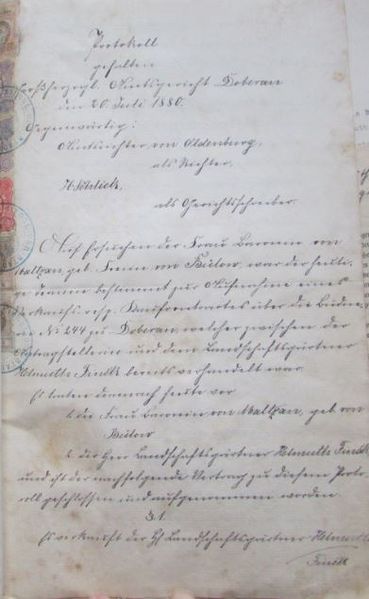 Protokoll
gehalten
Großherzogl. Amtsgericht Doberan
den 20. Juli 1880.
Gegenwärtig:
Amtsrichter von Oldenburg,
als Richter,
H. Schlick,
als Gerichtsschreiber.
Auf Ersuchen der Frau Baronin von
Maltzan, geb. von Bülow, war der heuti-
ge Termin bestimmt zur Aufnahme eines
Verkaufs resp. über die
No 244 zu Doberan, welcher zwischen der
Antragstellerin und dem Landschaftsgärtner
bereits verhandelt war.
Es traten demnach heute vor
1. die Frau Baronin von Maltzan, geb. von
Bülow
2. der Herr Landschaftsgärtner
und ist der nachfolgende Vertrag zu diesem Proto-
coll geschlossen und aufgenommen worden.
§.1.
Es verkauft der Landschaftsgärtner